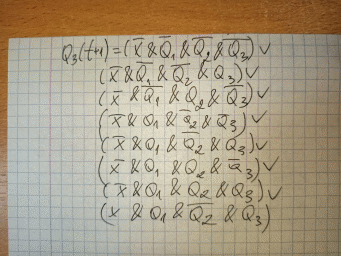 Q₃(t+1) = (X̅ & Q̅₁ & Q̅₂ & Q̅₃) ∨
(X̅ & Q̅₁ & Q̅₂ & Q₃) ∨
(X̅ & Q̅₁ & Q₂ & Q̅₃) ∨
(X̅ & Q₁ & Q̅₂ & Q̅₃) ∨
(X̅ & Q₁ & Q̅₂ & Q₃) ∨
(X̅ & Q₁ & Q₂ & Q̅₃) ∨
(X̅ & Q₁ & Q₂ & Q₃) ∨
(X & Q₁ & Q̅₂ & Q₃)